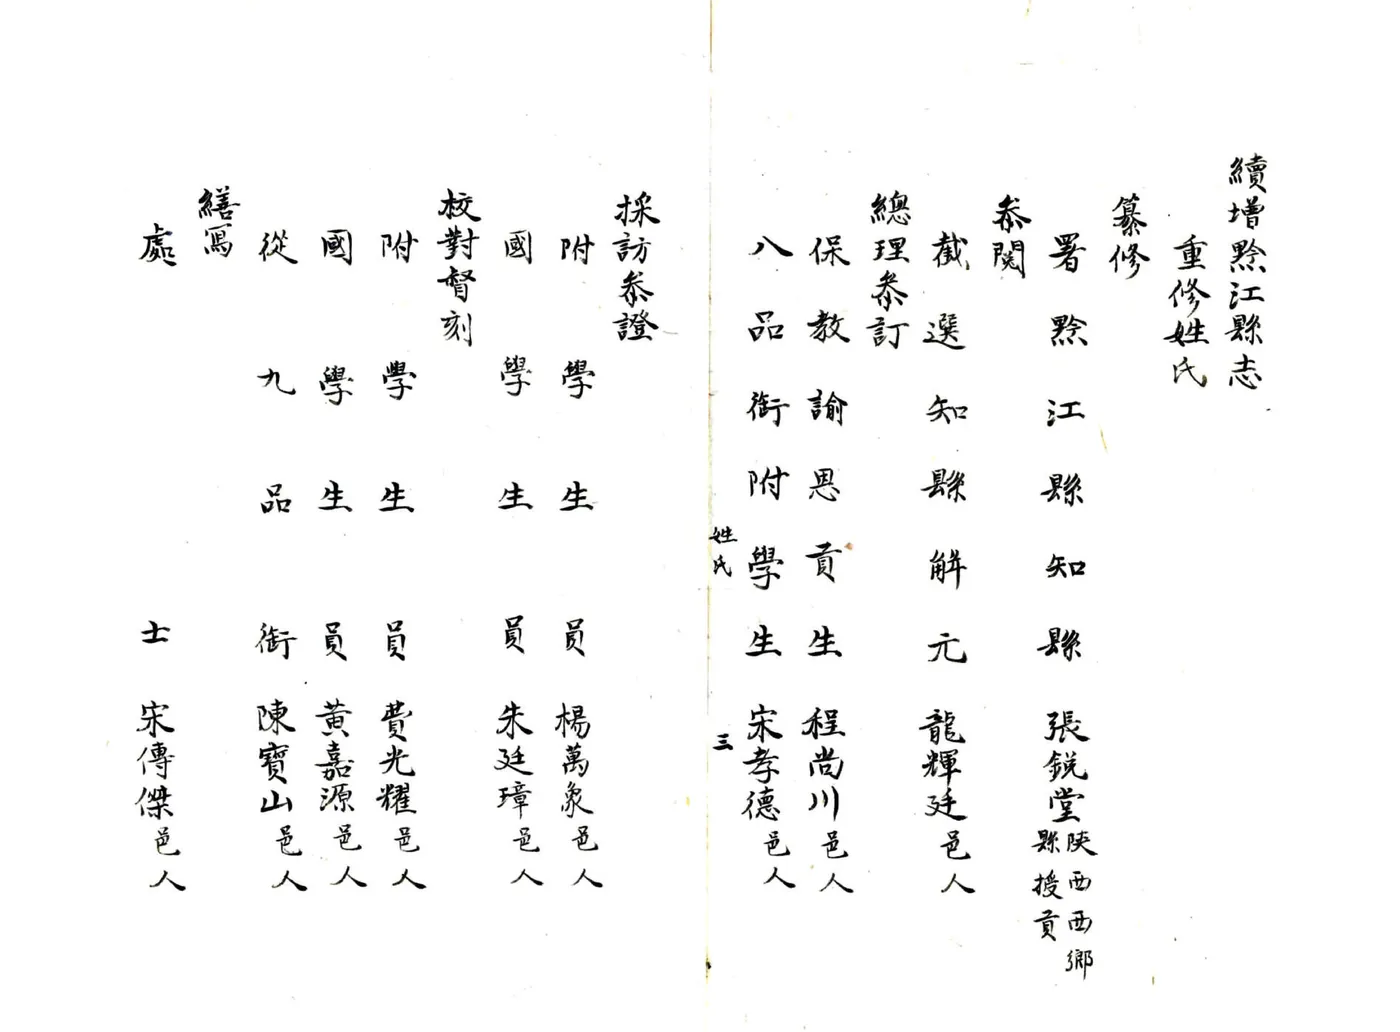 續增黔江縣志
重修姓氏
纂修
署黔江縣知縣張銳堂陝西西鄉
縣拔貢
叅閱
截選知縣解元龍輝廷邑人
總理叅訂
保教諭恩貢生程尚川邑人
八品銜附學生宋孝德邑人
姓氏
三
採訪叅證
附學生員楊萬象邑人
國學生員朱廷璋邑人
校對督刻
附學生員費光耀邑人
國學生員黃嘉源邑人
從九品銜陳寶山邑人
繕寫
處士宋傳傑邑人